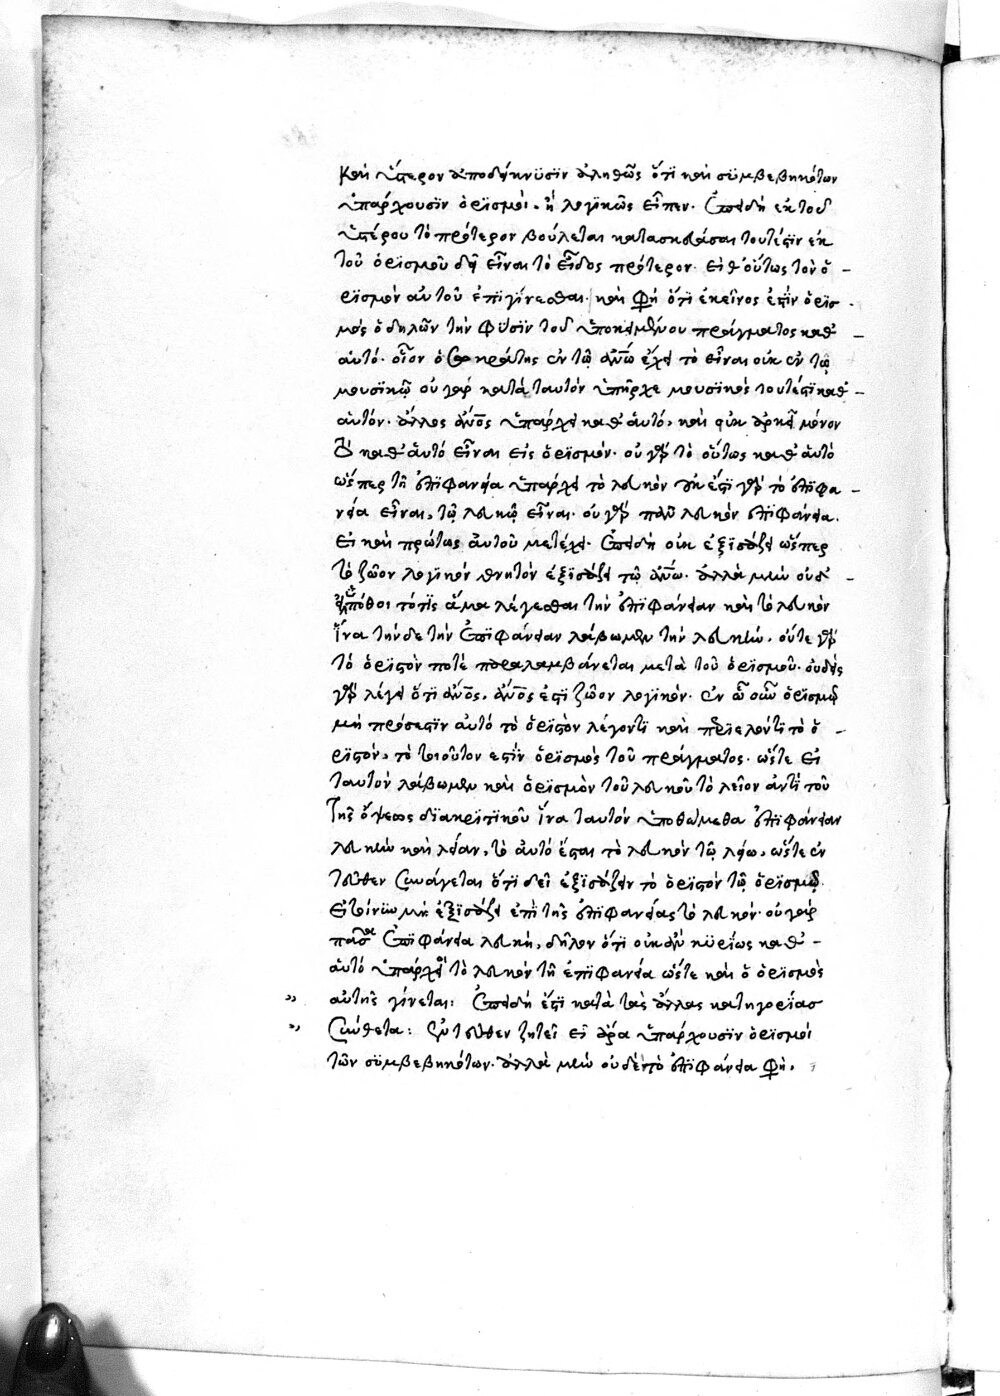 καὶ ὕστερον ἀποδείκνυσιν ἀληθῶς ὅτι καὶ συμβεβηκότων
ὑπάρχουσιν ὁρισμοί. ἢ λογικῶς εἶπεν. Ἐπειδὴ ἐκ τοῦ
ὑστέρου τὸ πρότερον βούλεται κατασκευάσαι τουτέστιν ἐκ
τοῦ ὁρισμοῦ δεῖ εἶναι τὸ εἶδος πρότερον. εἶθ' οὕτως τὸν ὁ-
ρισμὸν αὐτοῦ ἐπιγίνεσθαι. καὶ φησὶ ὅτι ἐκεῖνος ἐστὶν ὁρισ-
μὸς ὁ δηλῶν τὴν φύσιν τοῦ ὑποκειμένου πράγματος καθ'-
αὑτό. οἷον ὁ Σωκράτης ἐν τῷ ἀνῶ ἔχει τὸ εἶναι οὐκ ἐν τῷ
μουσικῷ οὐ γὰρ κατὰ ταυτὸν ὑπῆρχε μουσικὸς τουτέστι καθ'-
αὑτόν. ἀλλ' ὡς ἀνος ὑπάρχει καθ' αὑτό, καὶ οὐκ ἀρκεῖ μόνον
τὸ καθ' αὑτὸ εἶναι εἰς ὁρισμόν. οὐ γὰρ τὸ οὕτως καθ' αὑτὸ
ὥσπερ τῇ ἐπιφανείᾳ ὑπάρχει τὸ λευκὸν οὐκ ἔστι γὰρ τὸ ἐπιφα-
νείᾳ εἶναι, τῷ λευκῷ εἶναι. οὐ γὰρ πᾶν λευκὸν ἐπιφάνεια.
εἰ καὶ πρώτως αὐτοῦ μετέχει. Ἐπειδὴ οὐκ ἐξισάζει ὥσπερ
τὸ ζῶον λογικὸν θνητὸν ἐξισάζει τῷ ἀνῶ. ἀλλὰ μὴν οὐδ'-
τίς ἅμα λέγεσθαι τὴν ἐπιφάνειαν καὶ τὸ λευκὸν
ἵνα τήνδε τὴν Ἐπιφάνειαν λάβωμεν τὴν λευκήν. οὔτε γὰρ
τὸ ὁριστόν ποτε παραλαμβάνεται μετὰ τοῦ ὁρισμοῦ. οὐδεὶς
γὰρ λέγει ὅτι ἄνος, ἄνος ἐστὶ ζῶον λογικόν. ἐν ᾧ οὖν ὁρισμῷ
μὴ πρόσεστιν αὐτὸ τὸ ὁριστὸν λέγοντι καὶ περιελόντι τὸ ὁ-
ριστόν, τὸ τοιοῦτον ἐστὶν ὁρισμὸς τοῦ πράγματος. ὥστε εἰ
ταυτὸν λάβωμεν καὶ ὁρισμὸν τοῦ λευκοῦ τὸ λεῖον ἀντὶ τοῦ
τῆς ὄψεως διακριτικοῦ ἵνα ταυτὸν ὑποθώμεθα ἐπιφάνειαν
λευκὴν καὶ λείαν, τὸ αὐτὸ ἔσται τὸ λευκὸν τῷ λείῳ, ὥστε ἐν
τεῦθεν συνάγεται ὅτι δεῖ ἐξισάζειν τὸ ὁριστὸν τῷ ὁρισμῷ.
εἰ τοίνυν μὴ ἐξισάζει ἐπὶ τῆς ἐπιφανείας τὸ λευκόν. οὐ γὰρ
πᾶσα Ἐπιφάνεια λευκή, δῆλον ὅτι οὐκ ἂν κυρίως καθ'-
αὑτὸ ὑπάρχει τὸ λευκὸν τῇ ἐπιφανείᾳ ὥστε καὶ ὁ ὁρισμὸς
αὐτῆς γίνεται: Ἐπειδὴ ἔστι κατὰ τὰς ἄλλας κατηγορίας
σύνθετα: Ἐντεῦθεν ζητεῖ εἰ ἄρα ὑπάρχουσιν ὁρισμοὶ
τῶν συμβεβηκότων. ἀλλὰ μὴν οὐδὲ τὸ ἐπιφάνεια φησί.